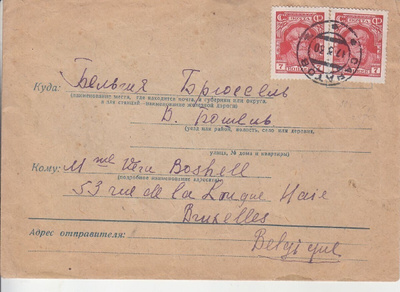 ПОЧТА
7 КОП. 7
ПОЧТА
7 КОП. 7
САРАТОВ
Куда: Бельгия Брюссель
(наименование места, где находится почта, и губернии или округа,
а для станций – наименование железной дороги)
В. Бошель
(уезд или район, волость, село или деревня,
улица, № дома и квартиры)
Кому: Mme Vera Boshell
(подробное наименование адресата)
53 rue de la Longue Haie
Bruxelles
Адрес отправителя: Belgique